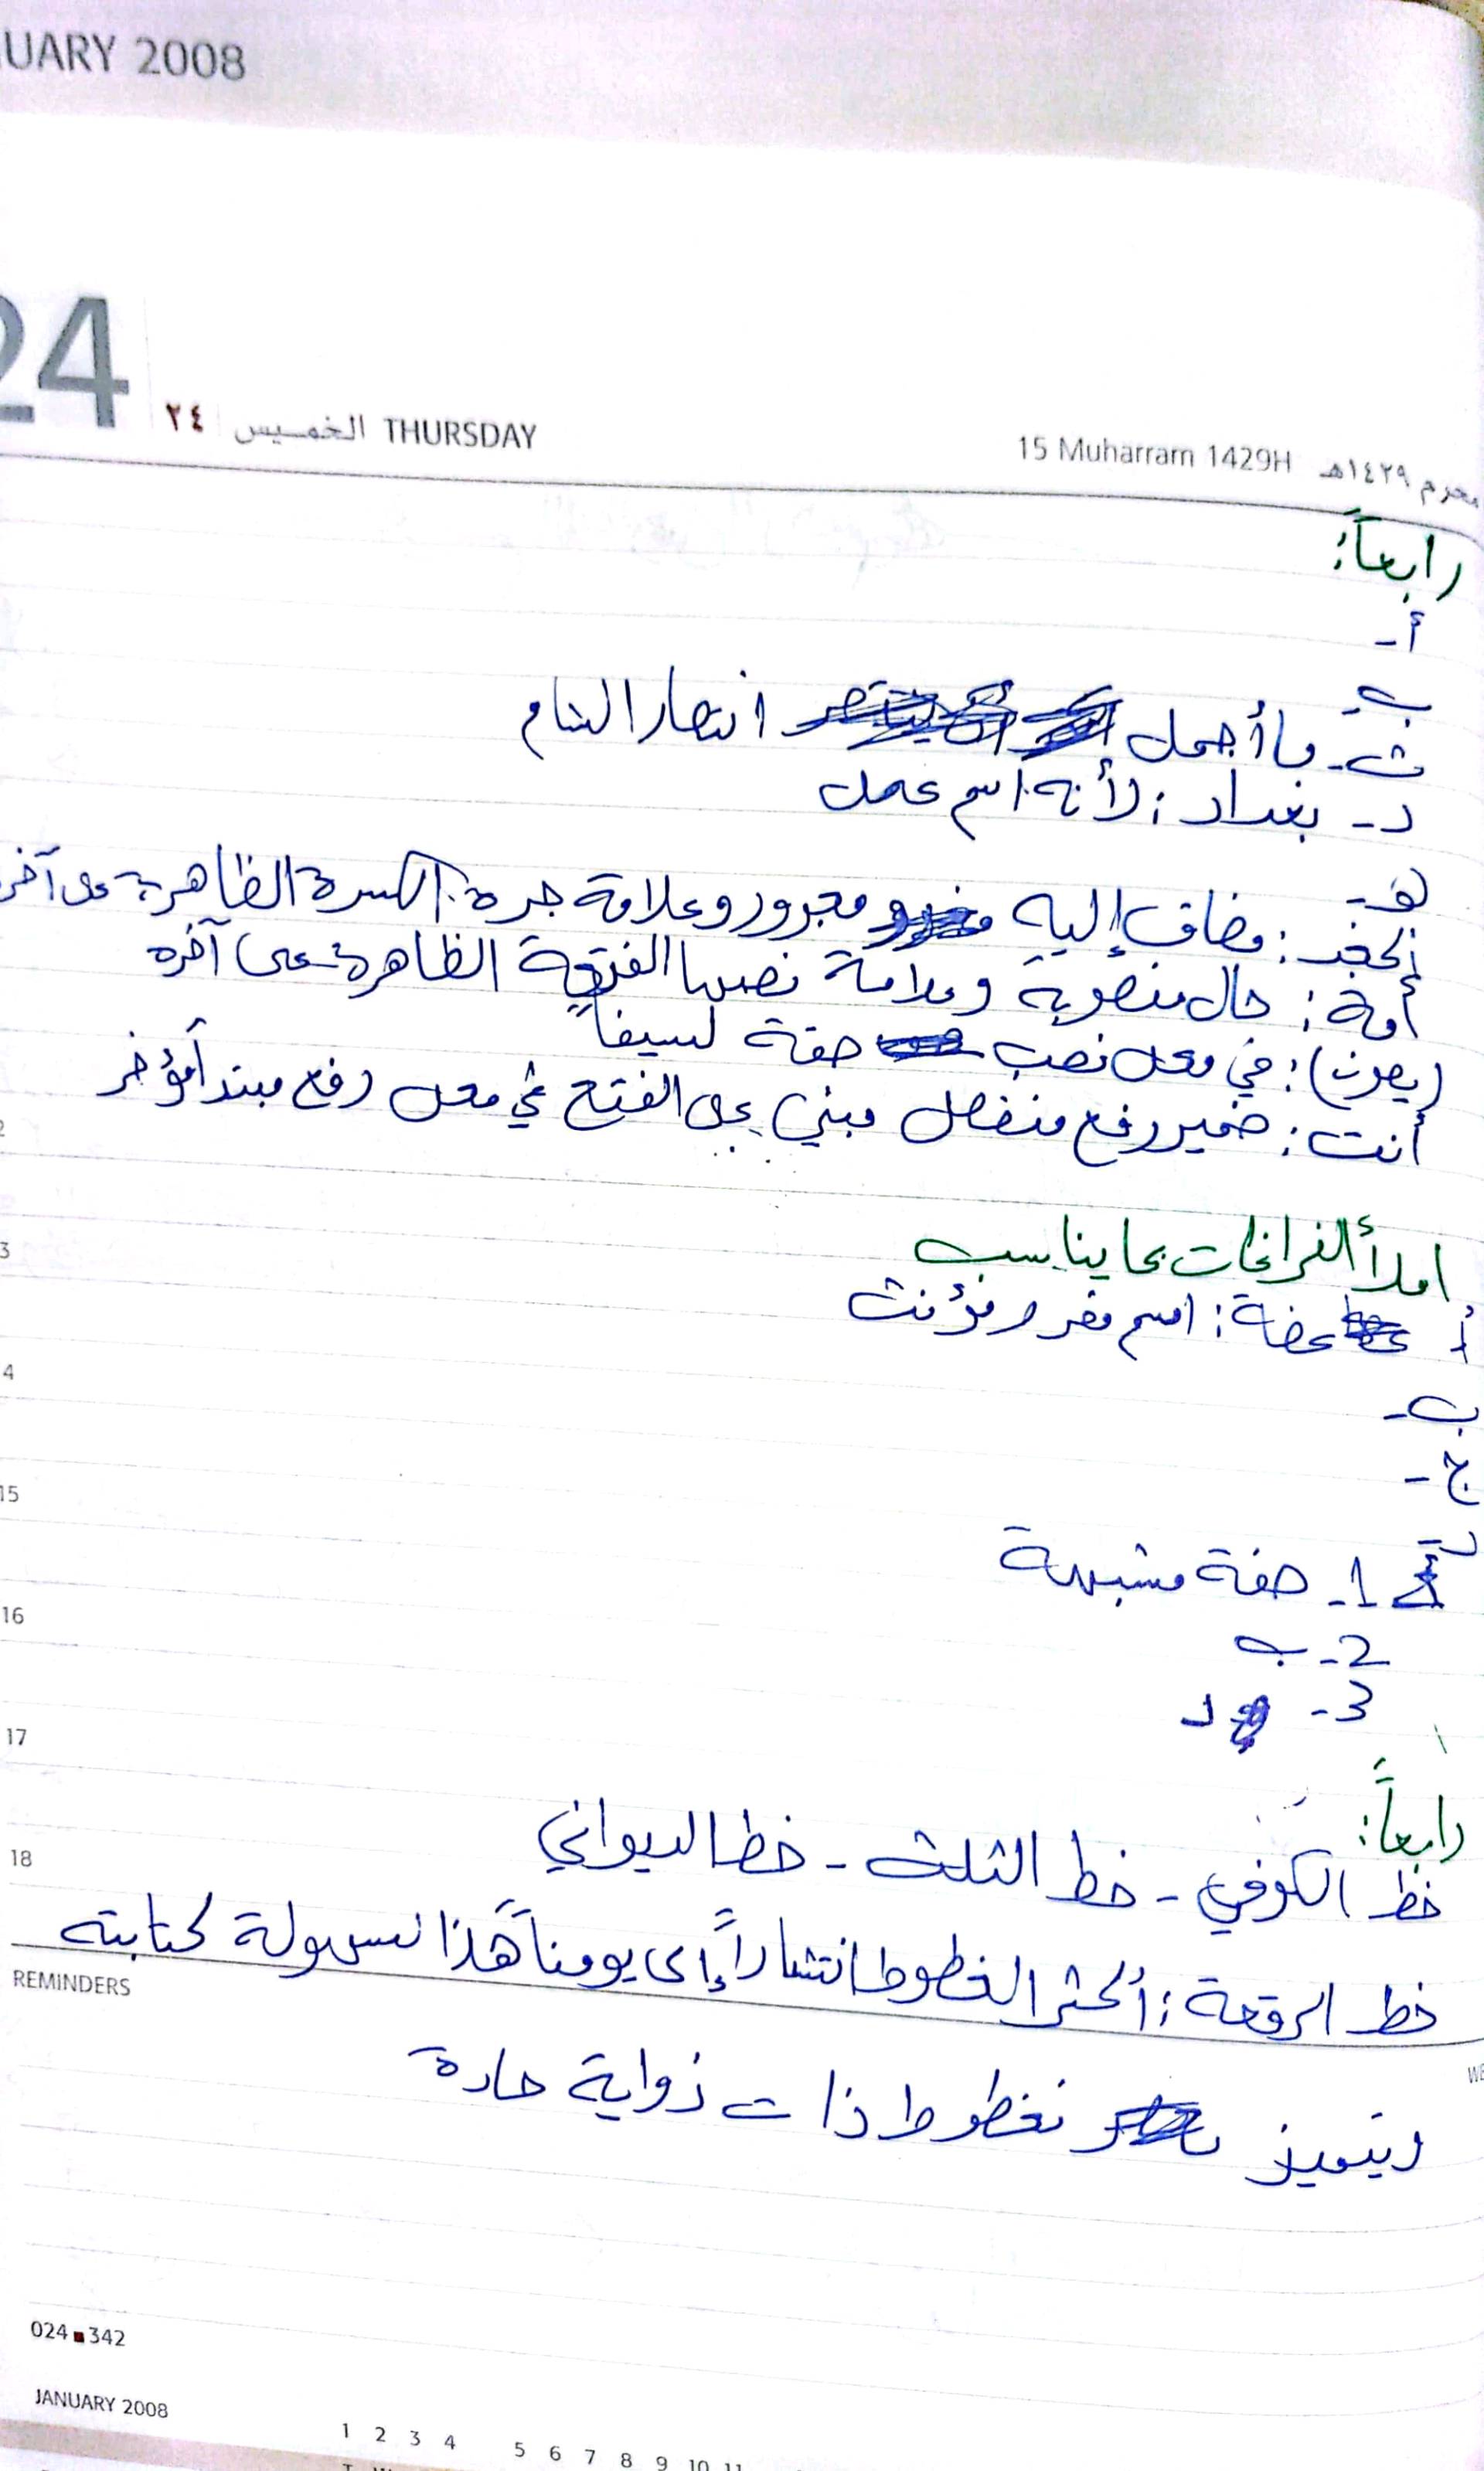 JANUARY 2008
24
٢٤ الخميس THURSDAY
15 Muharram 1429H محرم ١٤٢٩هـ
رابعاً:
أ-
ب-
ث- ما أجمل انتصار الشام
د- بغداد: لأنه اسم عمل
هـ-
: مضاف إليه مجرور وعلامة جره الكسرة الظاهرة على آخر
أمة: حال منصوبة وعلامة نصبها الفتحة الظاهرة على آخره
(يعرف): في محل نصب صفة لسيفاً
أنت: ضمير رفع منفصل مبني على الفتح في محل رفع مبتدأ مؤخر
املأ الفراغات بما يناسب
أ عضة: اسم مفرد مؤنث
ب-
ج-
1- صفة مشبهة
2- ب
3- د
رابعاً:
خط الكوفي - خط الثلث - خط الديواني
خط الرقعة: أكثر الخطوط انتشاراً إلى يومنا هذا لسهولة كتابته
ويتميز بخطوط ذات زواية حادة
2
3
4
15
16
17
18
REMINDERS
024 342
JANUARY 2008
1 2 3 4 5 6 7 8 9 10 11